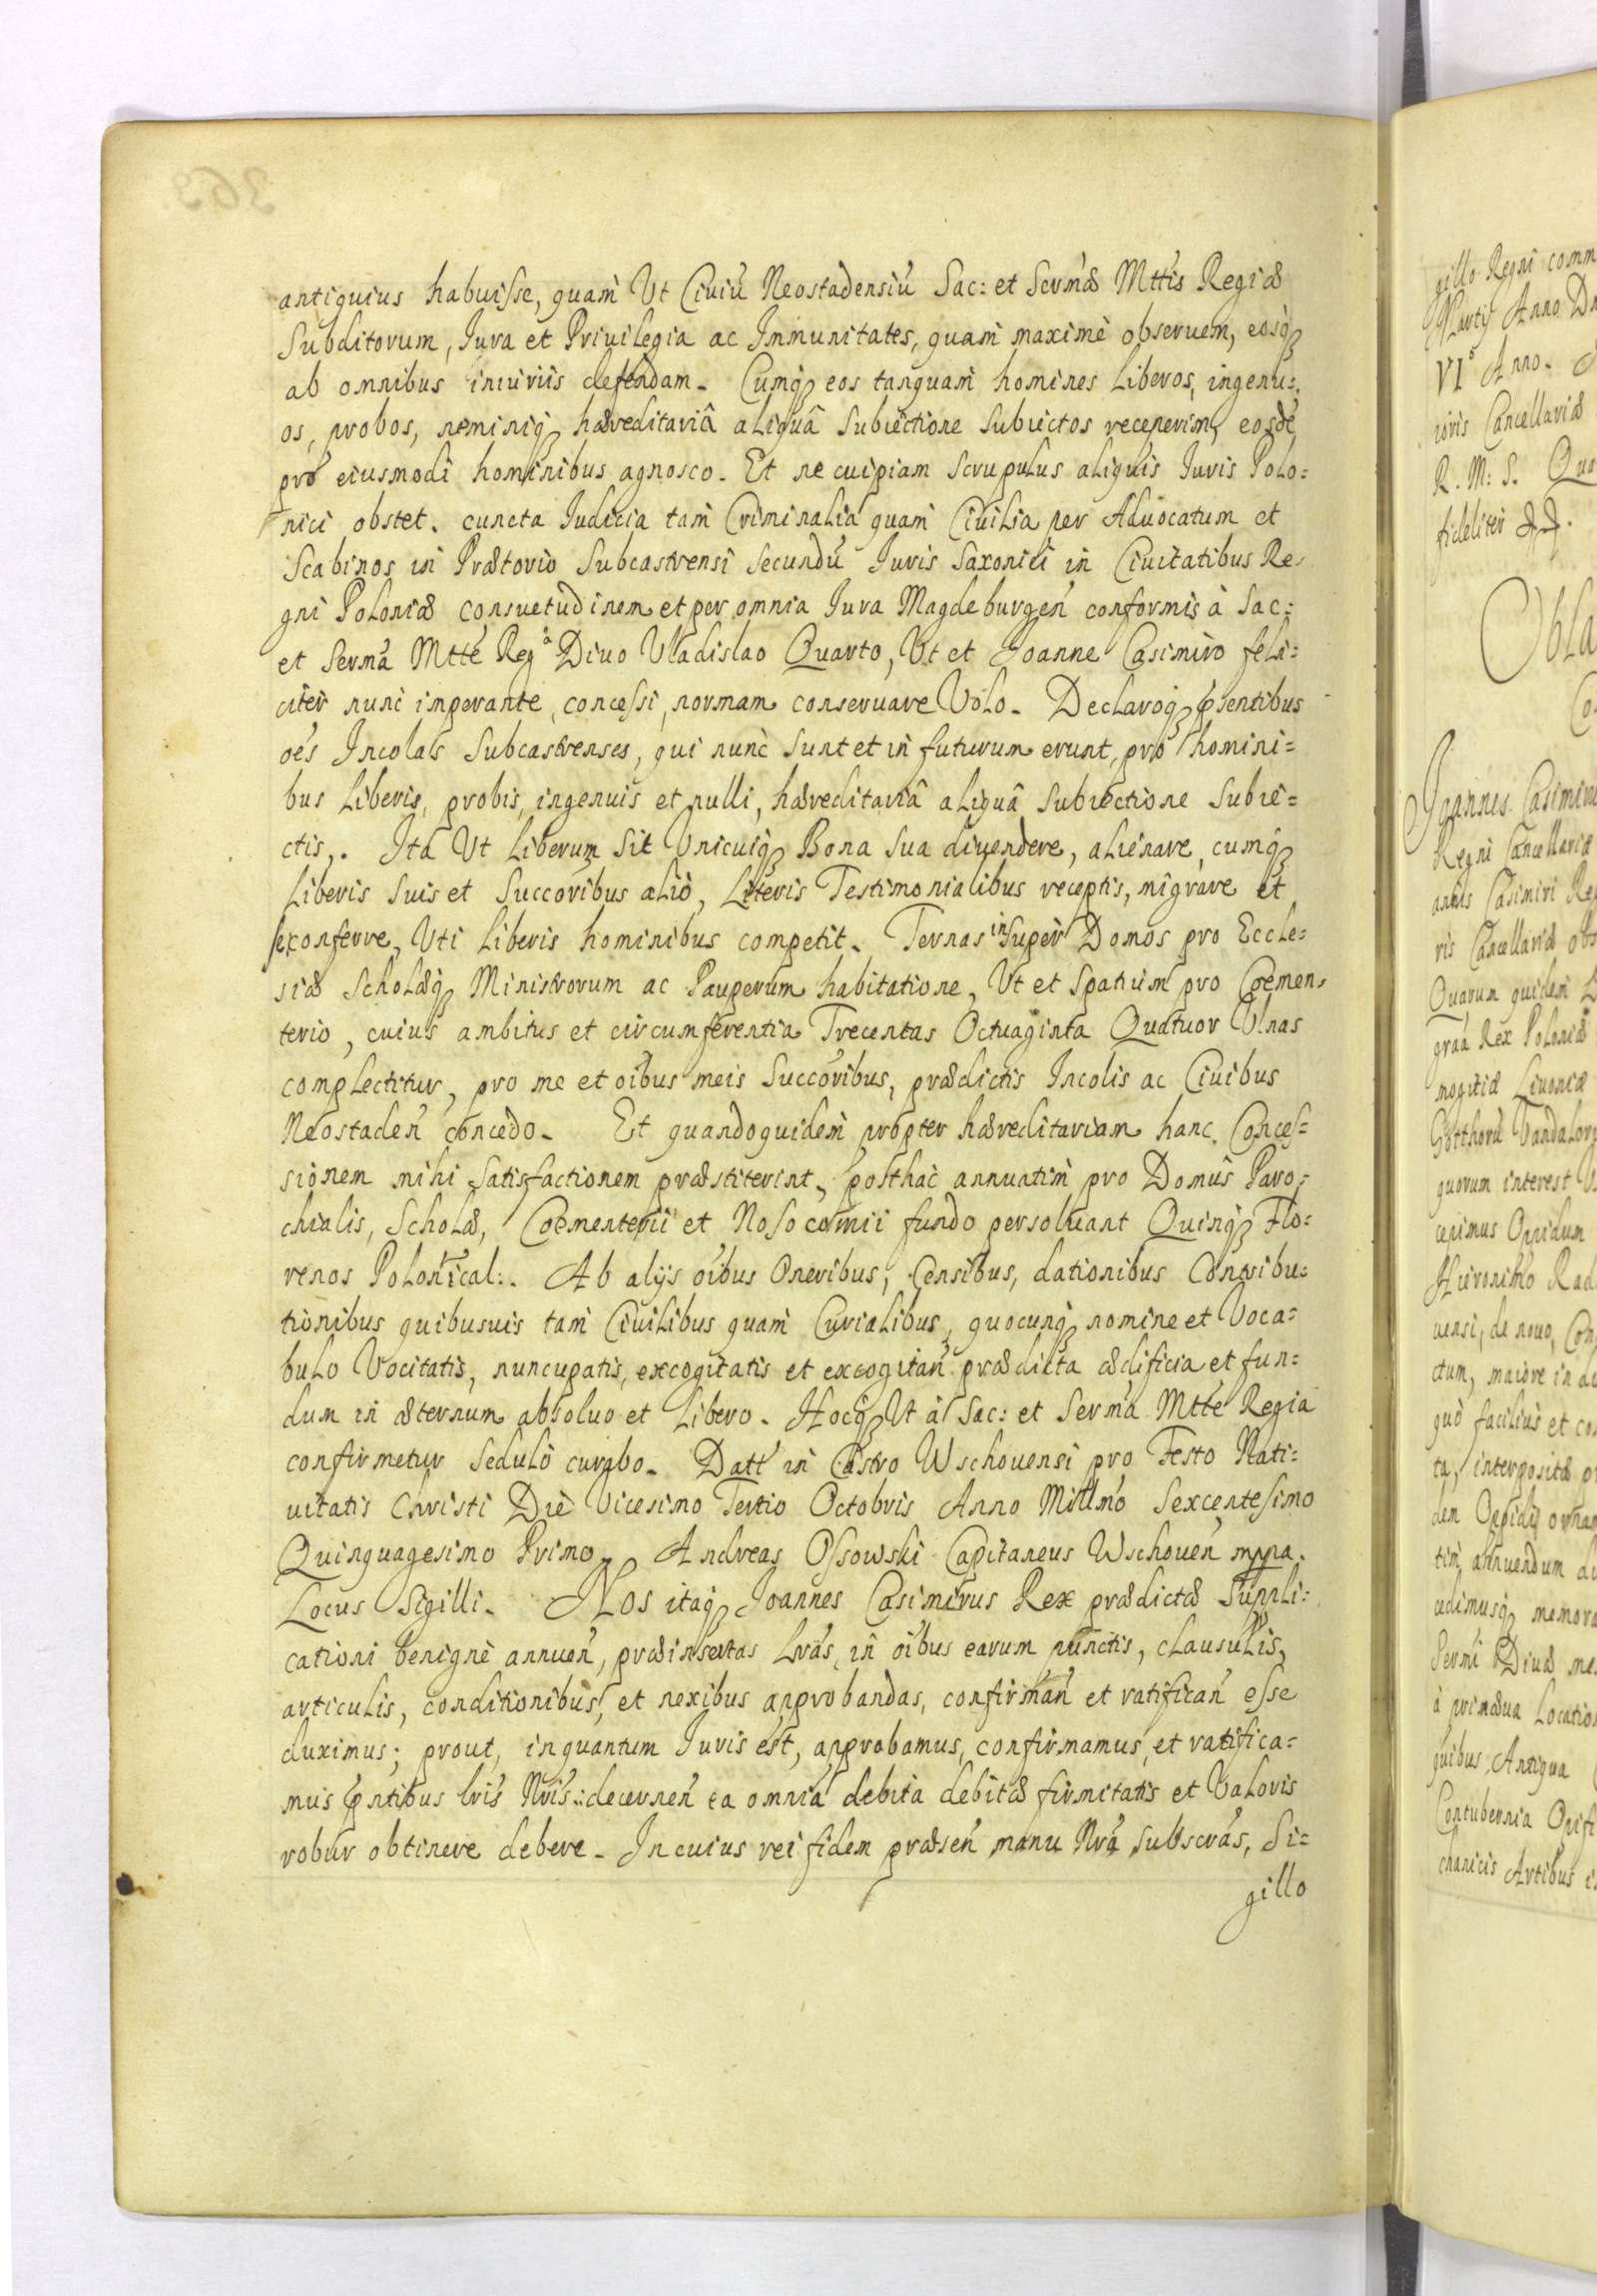 antiquius habuisse, quam Ut Civiũ Neostadensiũ Sac: et Serm̃æ Mttis Regiæ
Subditorum, Iura et Privilegia ac Immunitates, quam maximè observem, eosq́ꝫ
ab omnibus iniuriis defendam. Cumq́ꝫ eos tanquam homines liberos, ingenu=
os, probos, neminiq́ꝫ hæreditariâ aliquâ Subiectione Subiectos receperim, eosdẽ
pro eiusmodi hominibus agnosco. Et ne cuipiam Scrupulus aliquis Iuris Polo=
nici obstet. cuncta Iudicia tam Criminalia quam Civilia per Advocatum et
Scabinos in Prætorio Subcastrensi Secundũ Iuris Saxonici in Civitatibus Re=
gni Poloniæ consuetudinem et per omnia Iura Magdeburgeñ conformis à Sac:
et Serm̃a Mtte Regᵃ Divo Vladislao Quarto, Ut et Joanne Casimiro feli=
citer nunc imperante, concessi, normam conservare Volo. Declaroq́ꝫ p̃sentibus
oẽs Incolas Subcastrenses, qui nunc Sunt et in futurum erunt, pro homini=
bus liberis, probis, ingenuis et nulli, hæreditariâ aliquâ Subiectione Subie=
ctis. Ita Ut liberum Sit Unicuiq́ꝫ Bona Sua divendere, alienare, cumq́ꝫ
liberis Suis et Succoribus aliò, Literis Testimonialibus receptis, migrare et
exonferre, Uti liberis hominibus competit. Ternas inSuper Domos pro Eccle=
siæ Scholæq́ꝫ Ministrorum ac Pauperum habitatione, Ut et Spatium pro Cœmen=
terio, cuius ambitus et circumferentia Trecentas Octuaginta Quatuor Ulnas
complectitur, pro me et oĩbus meis Succoribus, prædictis Incolis ac Civibus
Neostadeñ concedo. Et quandoquidem propter hæreditariam hanc Conces=
sionem mihi Satisfactionem præstiterint, posthac annuatim pro Domus Paro=
chialis, Scholæ, Cœmenterii et Nosocomii fundo persolvant Quinq́ꝫ Flo=
renos Polonical:. Ab alijs oĩbus Oneribus, Censibus, dationibus Contribu=
tionibus quibusvis tam Civilibus quam Curialibus, quocunq́ꝫ nomine et Voca=
bulo Vocitatis, nuncupatis, excogitatis et excogitañ prædicta ædificia et fun=
dum in æternum absolvo et libero. Hocq́ꝫ Ut à Sac: et Serm̃a Mtte Regia
confirmetur Sedulò curabo. Datt in Castro Wschovensi pro Festo Nati=
vitatis Christi Die Vicesimo Tertio Octobris Anno Millm̃o Sexcentesimo
Quinquagesimo Primo. Andreas Ossowski Capitaneus Wschoveñ mppa.
Locus Sigilli. Nos itaq́ꝫ Joannes Casimirus Rex prædictæ Suppli=
cationi benignè annueñ, præinsertas lrãs, in oĩbus earum punctis, clausulis,
articulis, conditionibus, et nexibus approbandas, confirmañ et ratificañ esse
duximus; prout, inquantum Iuris est, approbamus, confirmamus, et ratifica=
mus p̃ntibus lris Nris: decerneñ ea omnia debita debitæ firmitatis et Valoris
robur obtinere debere. In cuius rei fidem præseñ manu Nrã Subscrãs, Si=
gillo
gillo Regni comm
Martij Anno D
VIº Anno.
ioris Cancellariæ
R. M: S. Qua
fideliter
Obla
Joannes Casimiru
Regni Cancellariæ
annis Casimiri Re
ris Cancellariæ obt
Quarum quidem
graã Rex Poloniæ
mogitiæ Livoniæ
Gotthorũ Vandalor
quorum interest
cepimus Oppidum
Hieronimo Rad
vensi, de novo, Con
ctum, maiore in
quò facilius et co
ta, interposita
dem Oppidi orna
tim annuendum
cedimusq́ꝫ memora
Sermi Divæ me
à primæva Locatio
quibus, Antiqua
Contubernia Opifi
chanicis Artibus